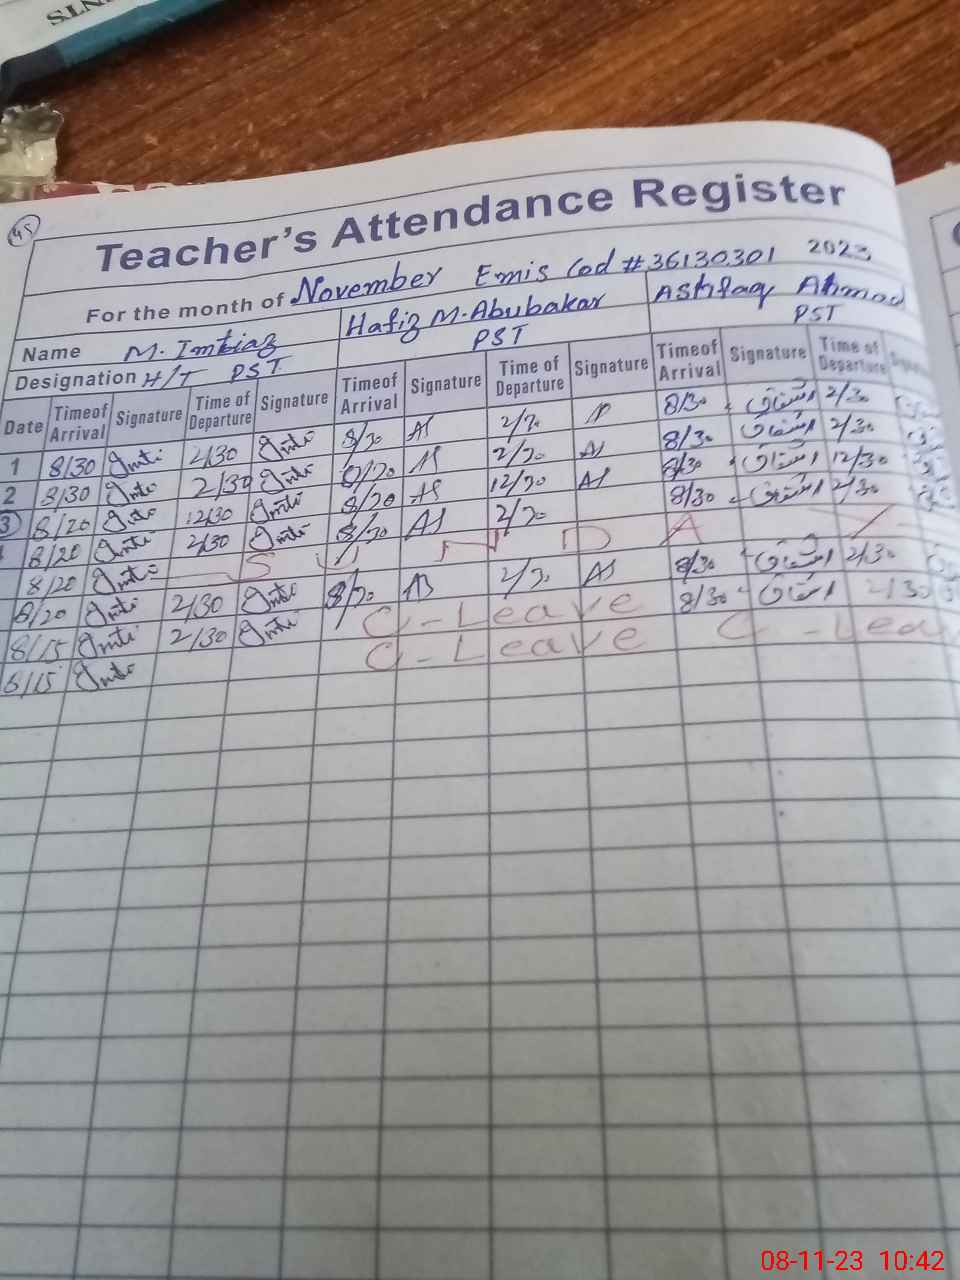 NTS
45
Teacher's Attendance Register
For the month of November Emis Cod # 36130301 2023
Name M. Imtiaz Hafiz M. Abubakar Ashfaq Ahmad
Designation H/T PST PST PST
Date Timeof Arrival Signature Time of Departure Signature Timeof Arrival Signature Time of Departure Signature Timeof Arrival Signature Time of Departure
1 8/30 Imti 2/30 Imti 8/30 AS 2/30 8/30 اشفاق 2/30
2 8/30 Imti 2/30 Imti 8/30 AS 2/30 AS 8/30 اشفاق 2/30
3 8/20 Imti 12/30 Imti 8/20 AS 12/30 AS 8/30 اشفاق 12/30
8/20 Imti 2/30 Imti 8/30 AS 2/30 8/30 اشفاق 2/30
8/20 Imti S U N D A Y
8/20 Imti 2/30 Imti 8/30 AB 2/30 AS 8/30 اشفاق 2/30
8/15 Imti 2/30 Imti C-Leave 8/30 اشفاق 2/30
8/15 Imti C-Leave C-Lea
08-11-23 10:42